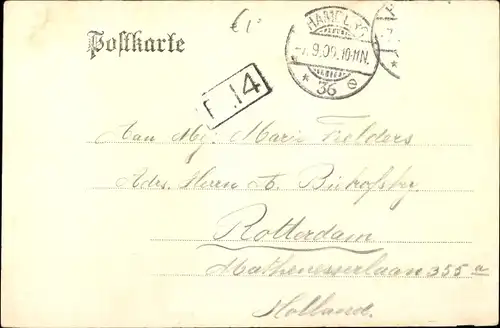 €1
Postkarte
HAMBURG
7.9.09.10-11N.
* 36 e
F.14
Aan Mej: Marie Fielders
Adrs. Herrn A. Bischofsby
Rotterdam
Mathenesserlaan 355 a
Holland.